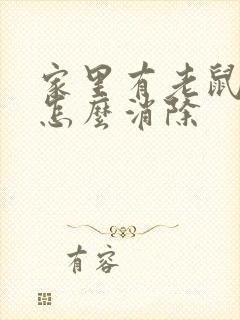 家里有老鼠
怎麼消除
有容